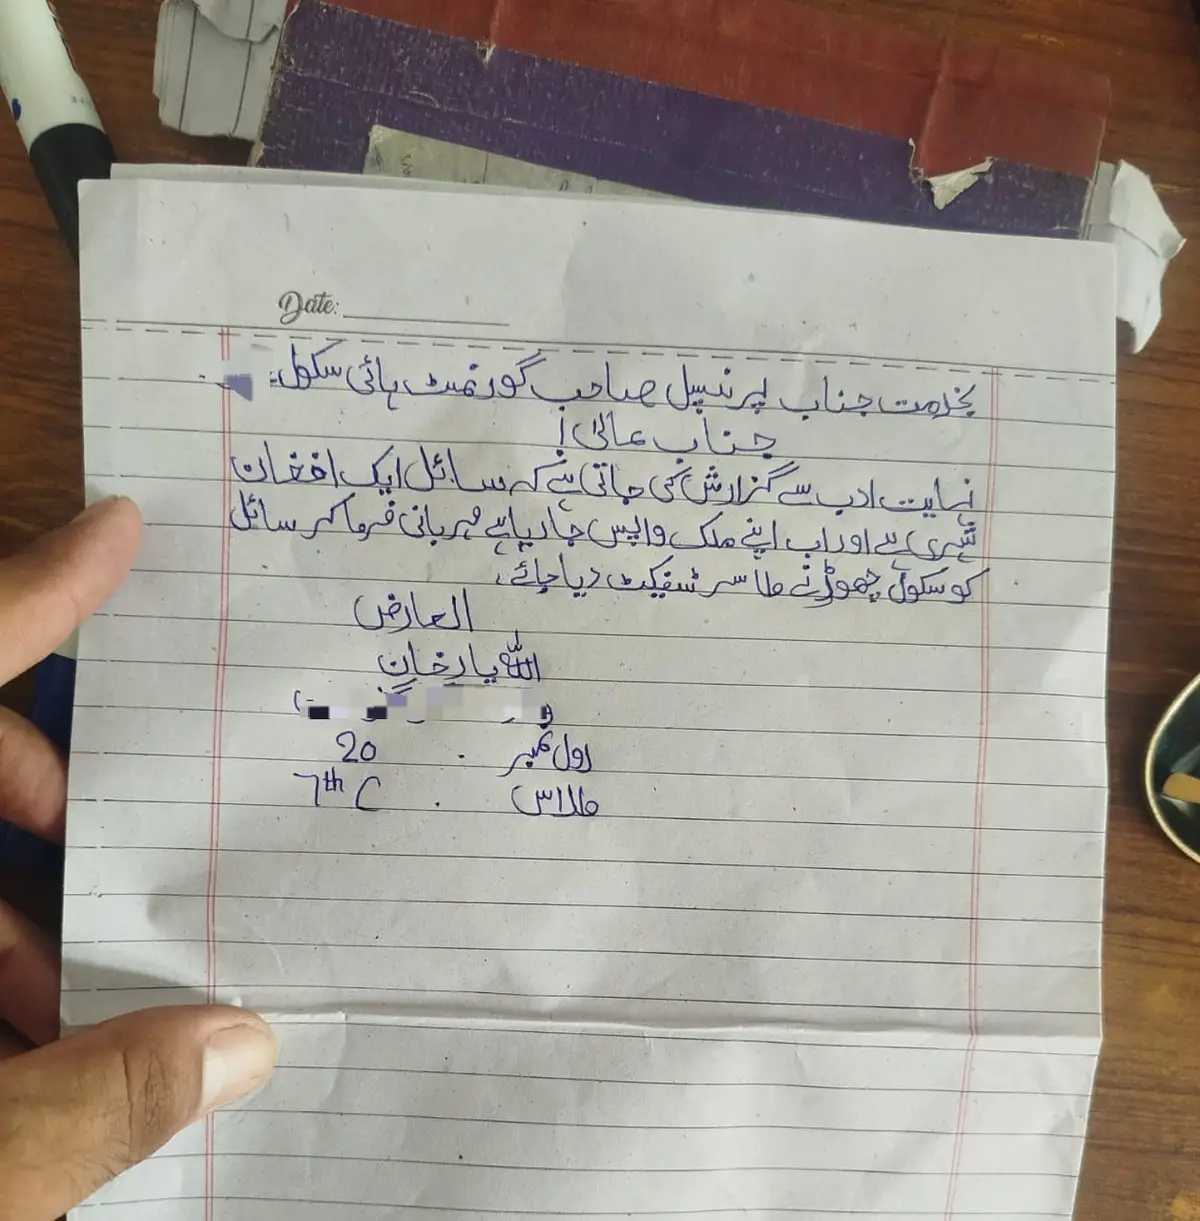 Date:
بخدمت جناب پرنسپل صاحب گورنمنٹ ہائی سکول
جناب عالی!
نہایت ادب سے گزارش کی جاتی ہے کہ سائل ایک افغان
شہری ہے اور اب اپنے ملک واپس جا رہا ہے مہربانی فرما کر سائل
کو سکول چھوڑنے کا سرٹیفکیٹ دیا جائے۔
العارض
اللہ یار خان
رول نمبر . 20
کلاس . 7th C